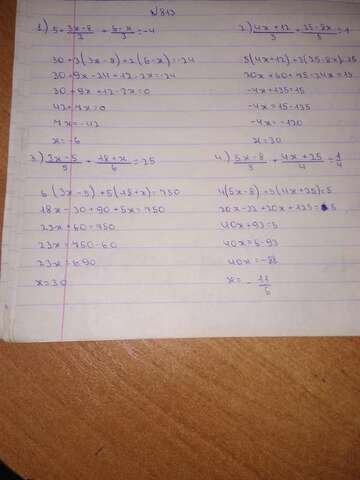 № 813
1) 5 + \frac{3x-8}{2} + \frac{6-x}{3} = -4
30 + 3(3x-8) + 2(6-x) = -24
30 + 9x - 24 + 12 - 2x = -24
30 + 9x + 12 - 2x = 0
42 + 7x = 0
7x = -42
x = -6
2) \frac{4x+12}{3} + \frac{25-8x}{5} = 1
5(4x+12) + 3(25-8x) = 15
20x + 60 + 75 - 24x = 15
-4x + 135 = 15
-4x = 15 - 135
-4x = -120
x = 30
3) \frac{3x-5}{5} + \frac{18+x}{6} = 25
6(3x-5) + 5(18+x) = 750
18x - 30 + 90 + 5x = 750
23x + 60 = 750
23x = 750 - 60
23x = 690
x = 30
4) \frac{5x-8}{5} + \frac{4x+25}{4} = \frac{1}{4}
4(5x-8) + 5(4x+25) = 5
20x - 32 + 20x + 125 = 5
40x + 93 = 5
40x = 5 - 93
40x = -88
x = -\frac{11}{5}